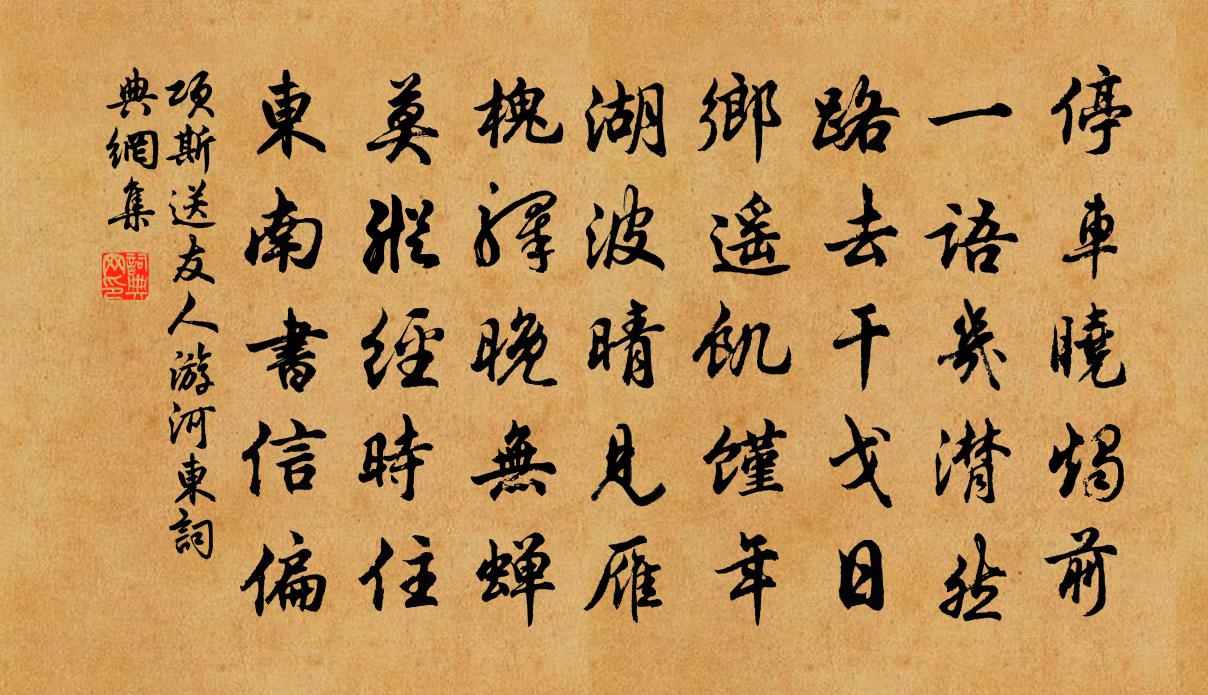 停車曉燭前
一語幾潸然
路去干戈日
鄉遥飢饉年
湖波晴見雁
槐驛晚無蝉
莫縱經時住
東南書信偏
项斯送友人游河東詞
典網集
詞典
网印